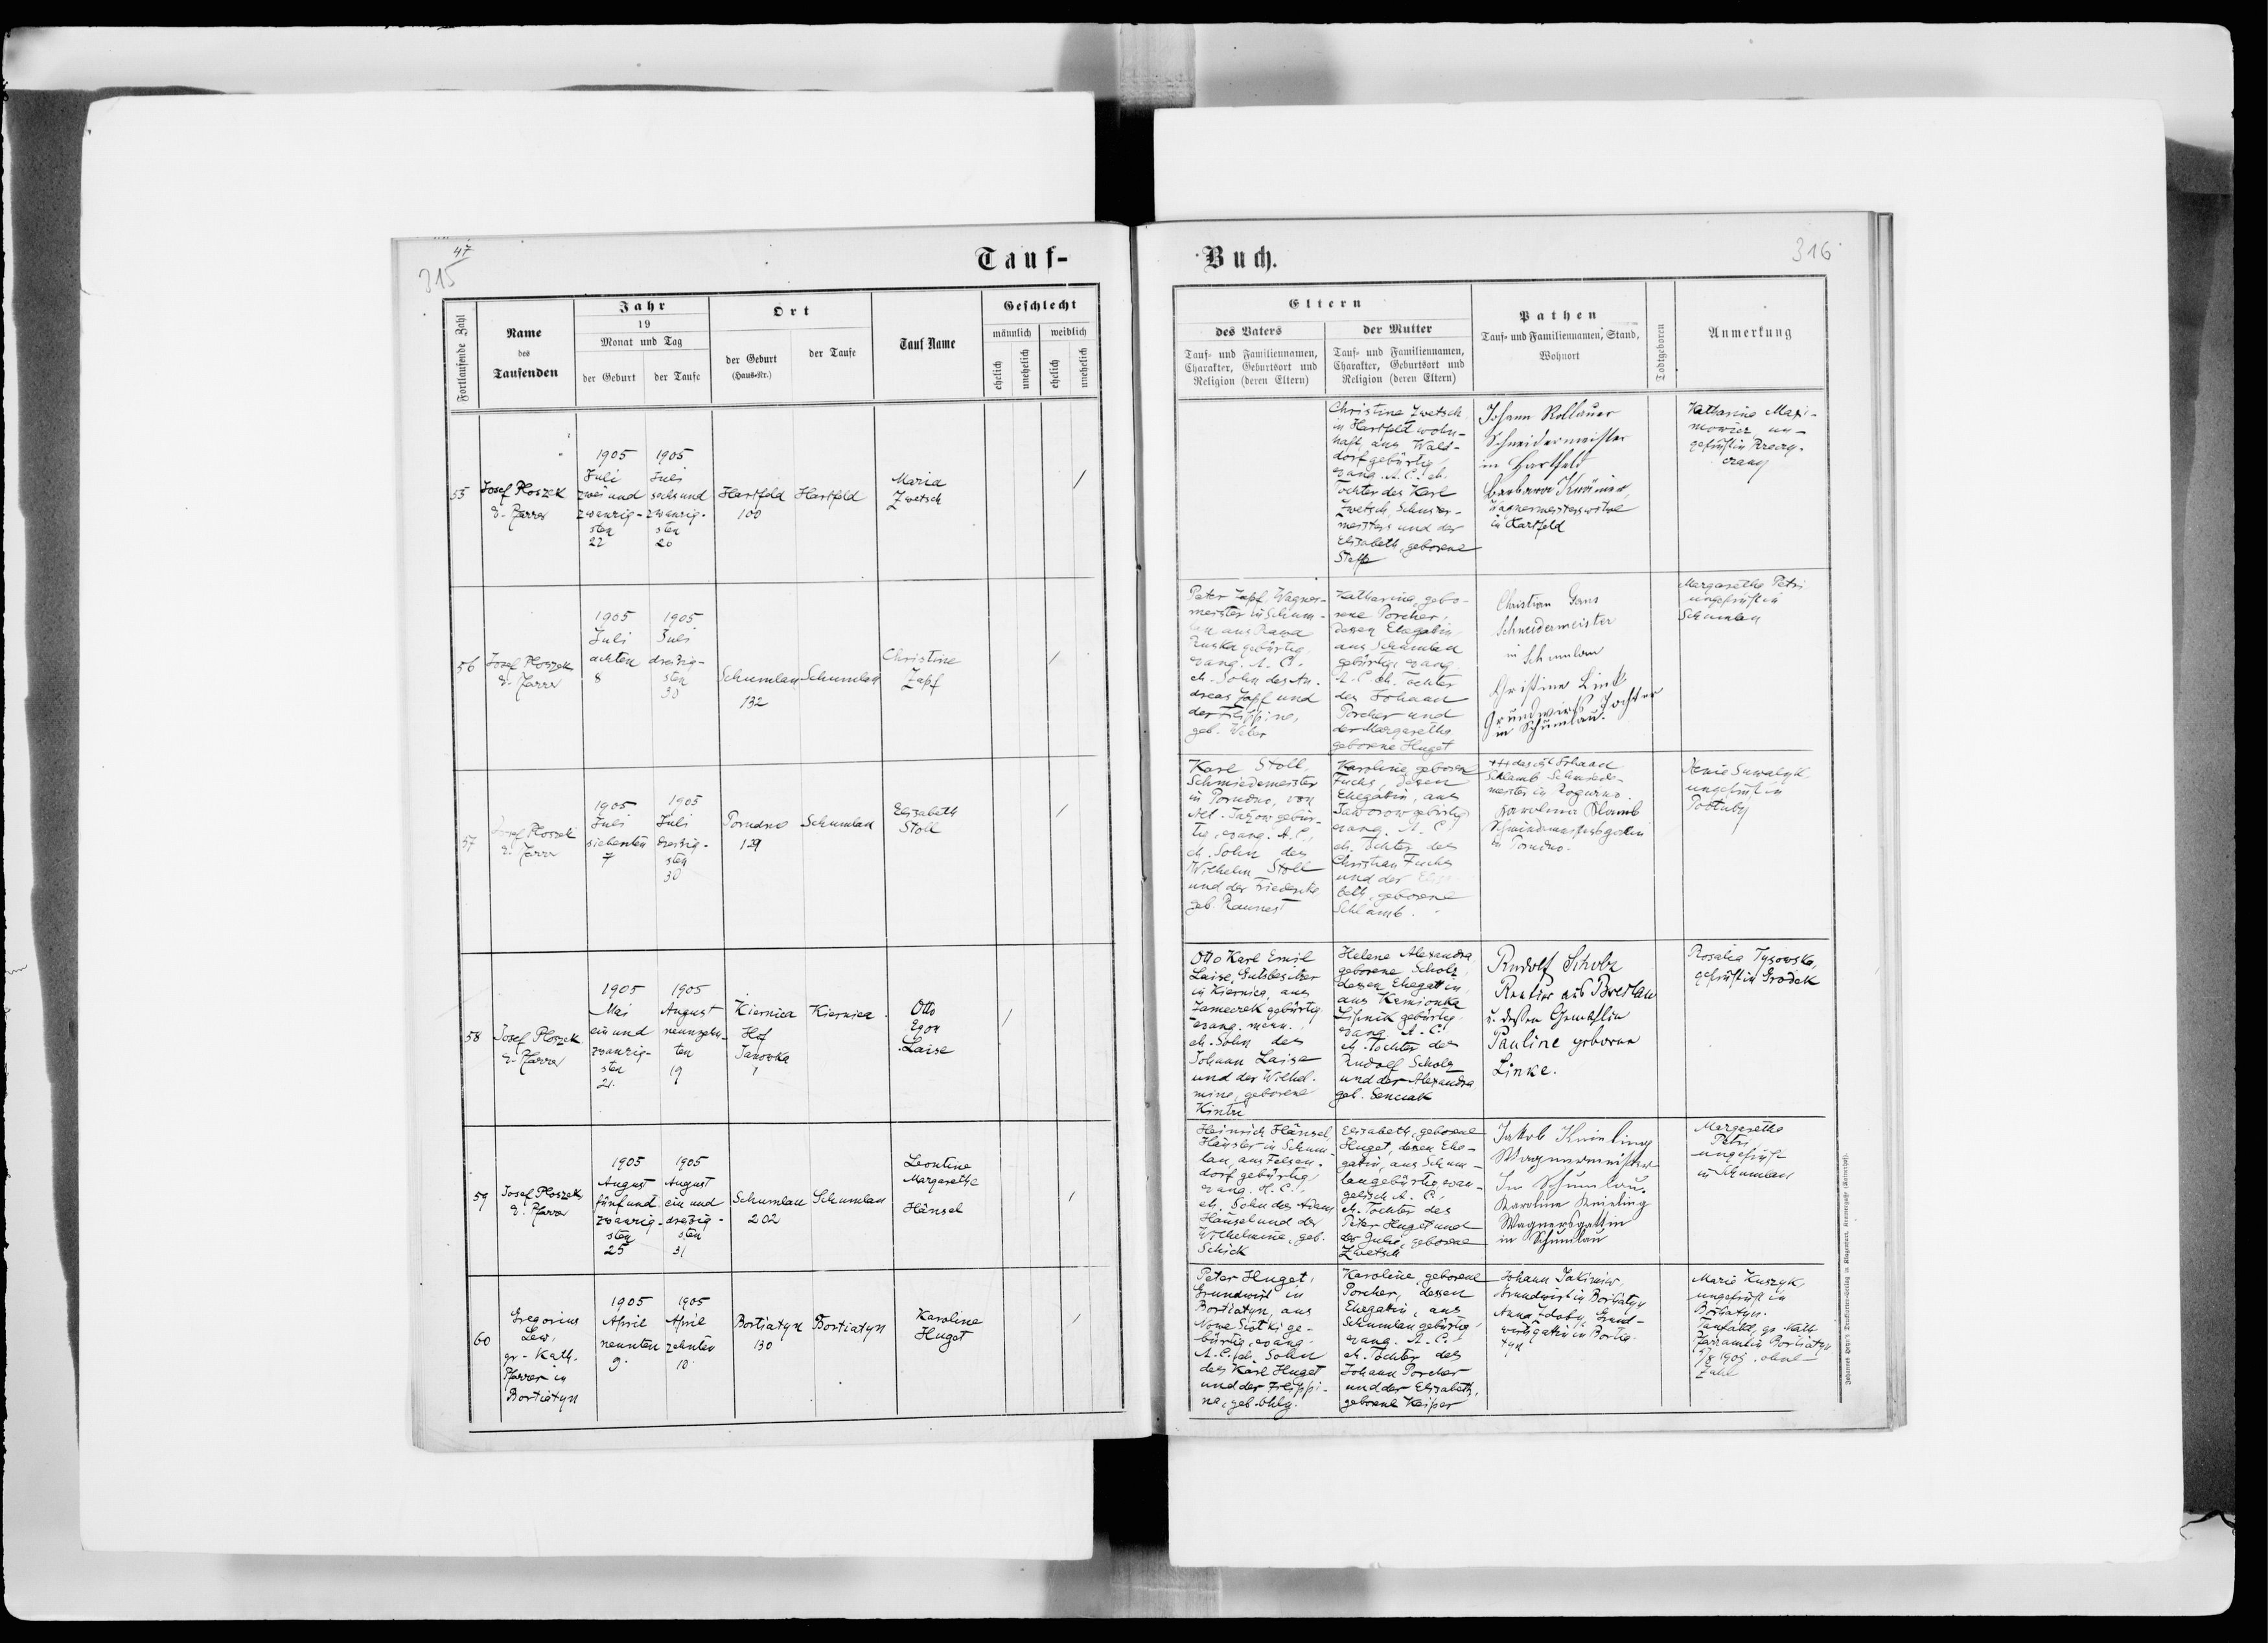 47
315
Tauf-
Fortlaufende Zahl
Name
des
Taufenden
Jahr
19
Monat und Tag
der Geburt
der Taufe
Ort
der Geburt
(Haus-Nr.)
der Taufe
Tauf Name
Geschlecht
männlich
weiblich
ehelich
unehelich
ehelich
unehelich
Buch.
316
Eltern
des Vaters
Tauf- und Familiennamen,
Charakter, Geburtsort und
Religion (deren Eltern)
der Mutter
Tauf- und Familiennamen,
Charakter, Geburtsort und
Religion (deren Eltern)
Pathen
Tauf- und Familiennamen, Stand,
Wohnort
Todtgeboren
Anmerkung
55
Josef Ploszek
e. Pfarrer
1905
Juli
zwei und
zwanzig-
sten
22
1905
Juli
sechs und
zwanzig-
sten
26
Hartfeld
100
Hartfeld
Maria
Zwetsch
/
Christine Zwetsch
in Hartfeld wohn-
haft, aus Wald-
dorf gebürtig,
evang. A. C. eh.
Tochter des Karl
Zwetsch, Schuster-
meisters und der
Elisabeth, geborene
Johann Kollauer
Schneidermeister
in Hartfeld
Barbara
Wagnermeisterswitwe
in Hartfeld
Katharina Maxi-
mowicz un-
geprüft in
56
Josef Ploszek
e. Pfarrer
1905
Juli
achten
8
1905
Juli
dreizig-
sten
30
Schumlau
132
Schumlau
Christine
Zapf
/
Peter Zapf, Wagner-
meister in Schum-
lau aus Rawa
Ruska gebürtig,
evang. A. C.
eh. Sohn des An-
dreas Zapf und
der Filippine,
geb. Weber
Katharina, gebo-
rene Porcher,
dessen Ehegatin,
aus Schumlau
gebürtig, evang.
A. C. eh. Tochter
des Johann
Porcher und
der Margaretha
geborene Huget
Christian Gans
Schneidermeister
in Schumlau
Christine Link
Grundwirts Tochter
in Schumlau.
Margaretha Petri
ungeprüft in
Schumlau
57
Josef Ploszek
e. Pfarrer
1905
Juli
siebenten
7
1905
Juli
dreizig-
sten
30
Porudno
129
Schumlau
Elisabeth
Stoll
/
Karl Stoll,
Schmiedemeister
in Porudno, von
gebür-
tig, evang. A. C.,
eh. Sohn des
Wilhelm Stoll
und der Friederike,
geb.
Karoline, geborene
Fuchs, dessen
Ehegatin, aus
Jaworow gebürtig
evang. A. C.
eh. Tochter des
Christian Fuchs
und der Elisa-
beth, geborene
Schlamb.
+++ des Johann
Schlamb Schmiede-
meister in Rogurno.
Karolina Schlamb
Schmiedemeistersgattin
in Porudno.
ungeprüft in
58
Josef Ploszek
e. Pfarrer
1905
Mai
ein und
zwanzig-
sten
21.
1905
August
neunzehn-
ten
19
Kiernica
Hof
Janovka
1
Kiernica
Otto
Egon
Laise
/
Otto Karl Emil
Laise, Gutsbesitzer
in Kiernica, aus
Zameczek gebürtig,
evang. menn.
eh. Sohn des
Johann Laise
und der Wilhel-
mine, geborene
Helene Alexandra,
geborene Scholz,
dessen Ehegattin,
aus Kamionka
gebürtig,
evang. A. C.
eh. Tochter des
Rudolf Scholz
und der Alexandra
geb. Senciak
Rudolf Scholz
Rentier aus Breslau
u. dessen Gemahlin
Pauline geborene
Linke.
Rosalia Tysowska,
geprüft in Grodek
59
Josef Ploszek
e. Pfarrer
1905
August
fünf und
zwanzig-
sten
25
1905
August
ein und
dreizig-
sten
31
Schumlau
202
Schumlau
Leontine
Margarethe
Hänsel
/
Heinrich Hänsel,
Häusler in Schum-
lau, aus Felsen-
dorf gebürtig,
evang. H. C.,
eh. Sohn des Adam
Hänsel und der
Wilhelmine, geb.
Schick
Elisabeth, geborene
Huget, dessen Ehe-
gatin, aus Schum-
lau gebürtig, evan-
gelisch A. C.,
eh. Tochter des
Peter Huget und
der Julie, geborene
Zwetsch
Jakob Knieling
Wagnermeister
in Schumlau.
Karoline Knieling
Wagnersgattin
in Schumlau
Margaretha
Petri
ungeprüft
in Schumlau
60
Gregorius
Lew,
gr.-kath.
Pfarrer in
Bortiatyn
1905
April
neunten
9.
1905
April
zehnten
10.
Bortiatyn
130
Bortiatyn
Karoline
Huget
/
Peter Huget,
Grundwirt in
Bortiatyn, aus
Nowe Siolki ge-
bürtig, evang.
A. C. eh. Sohn
des Karl Huget
und der Filippi-
ne, geb. Uhly.
Karoline, geborene
Porcher, dessen
Ehegattin, aus
Schumlau gebürtig,
evang. A. C.
eh. Tochter des
Johann Porcher
und der Elisabeth,
geborene Keiper
Johann Jakimiw,
Grundwirt in Bortiatyn
Anna Grund-
wirtsgattin in Bortia-
tyn
Marie Kuszyk,
ungeprüft in
Bortiatyn.
gr. kath.
Pfarramt in Bortiatyn
1905. ohne
Zahl